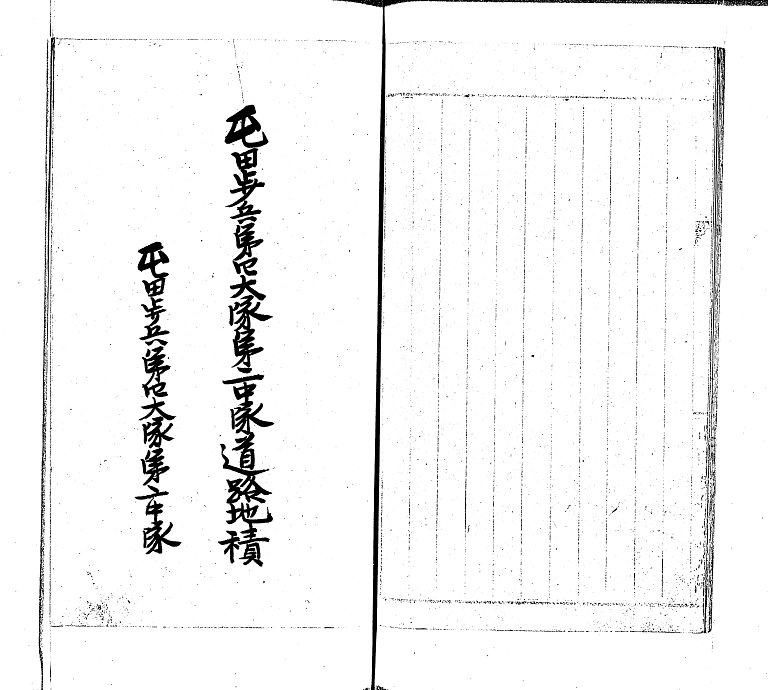 屯田歩兵第四大隊第二中隊道路地積
屯田歩兵第四大隊第二中隊